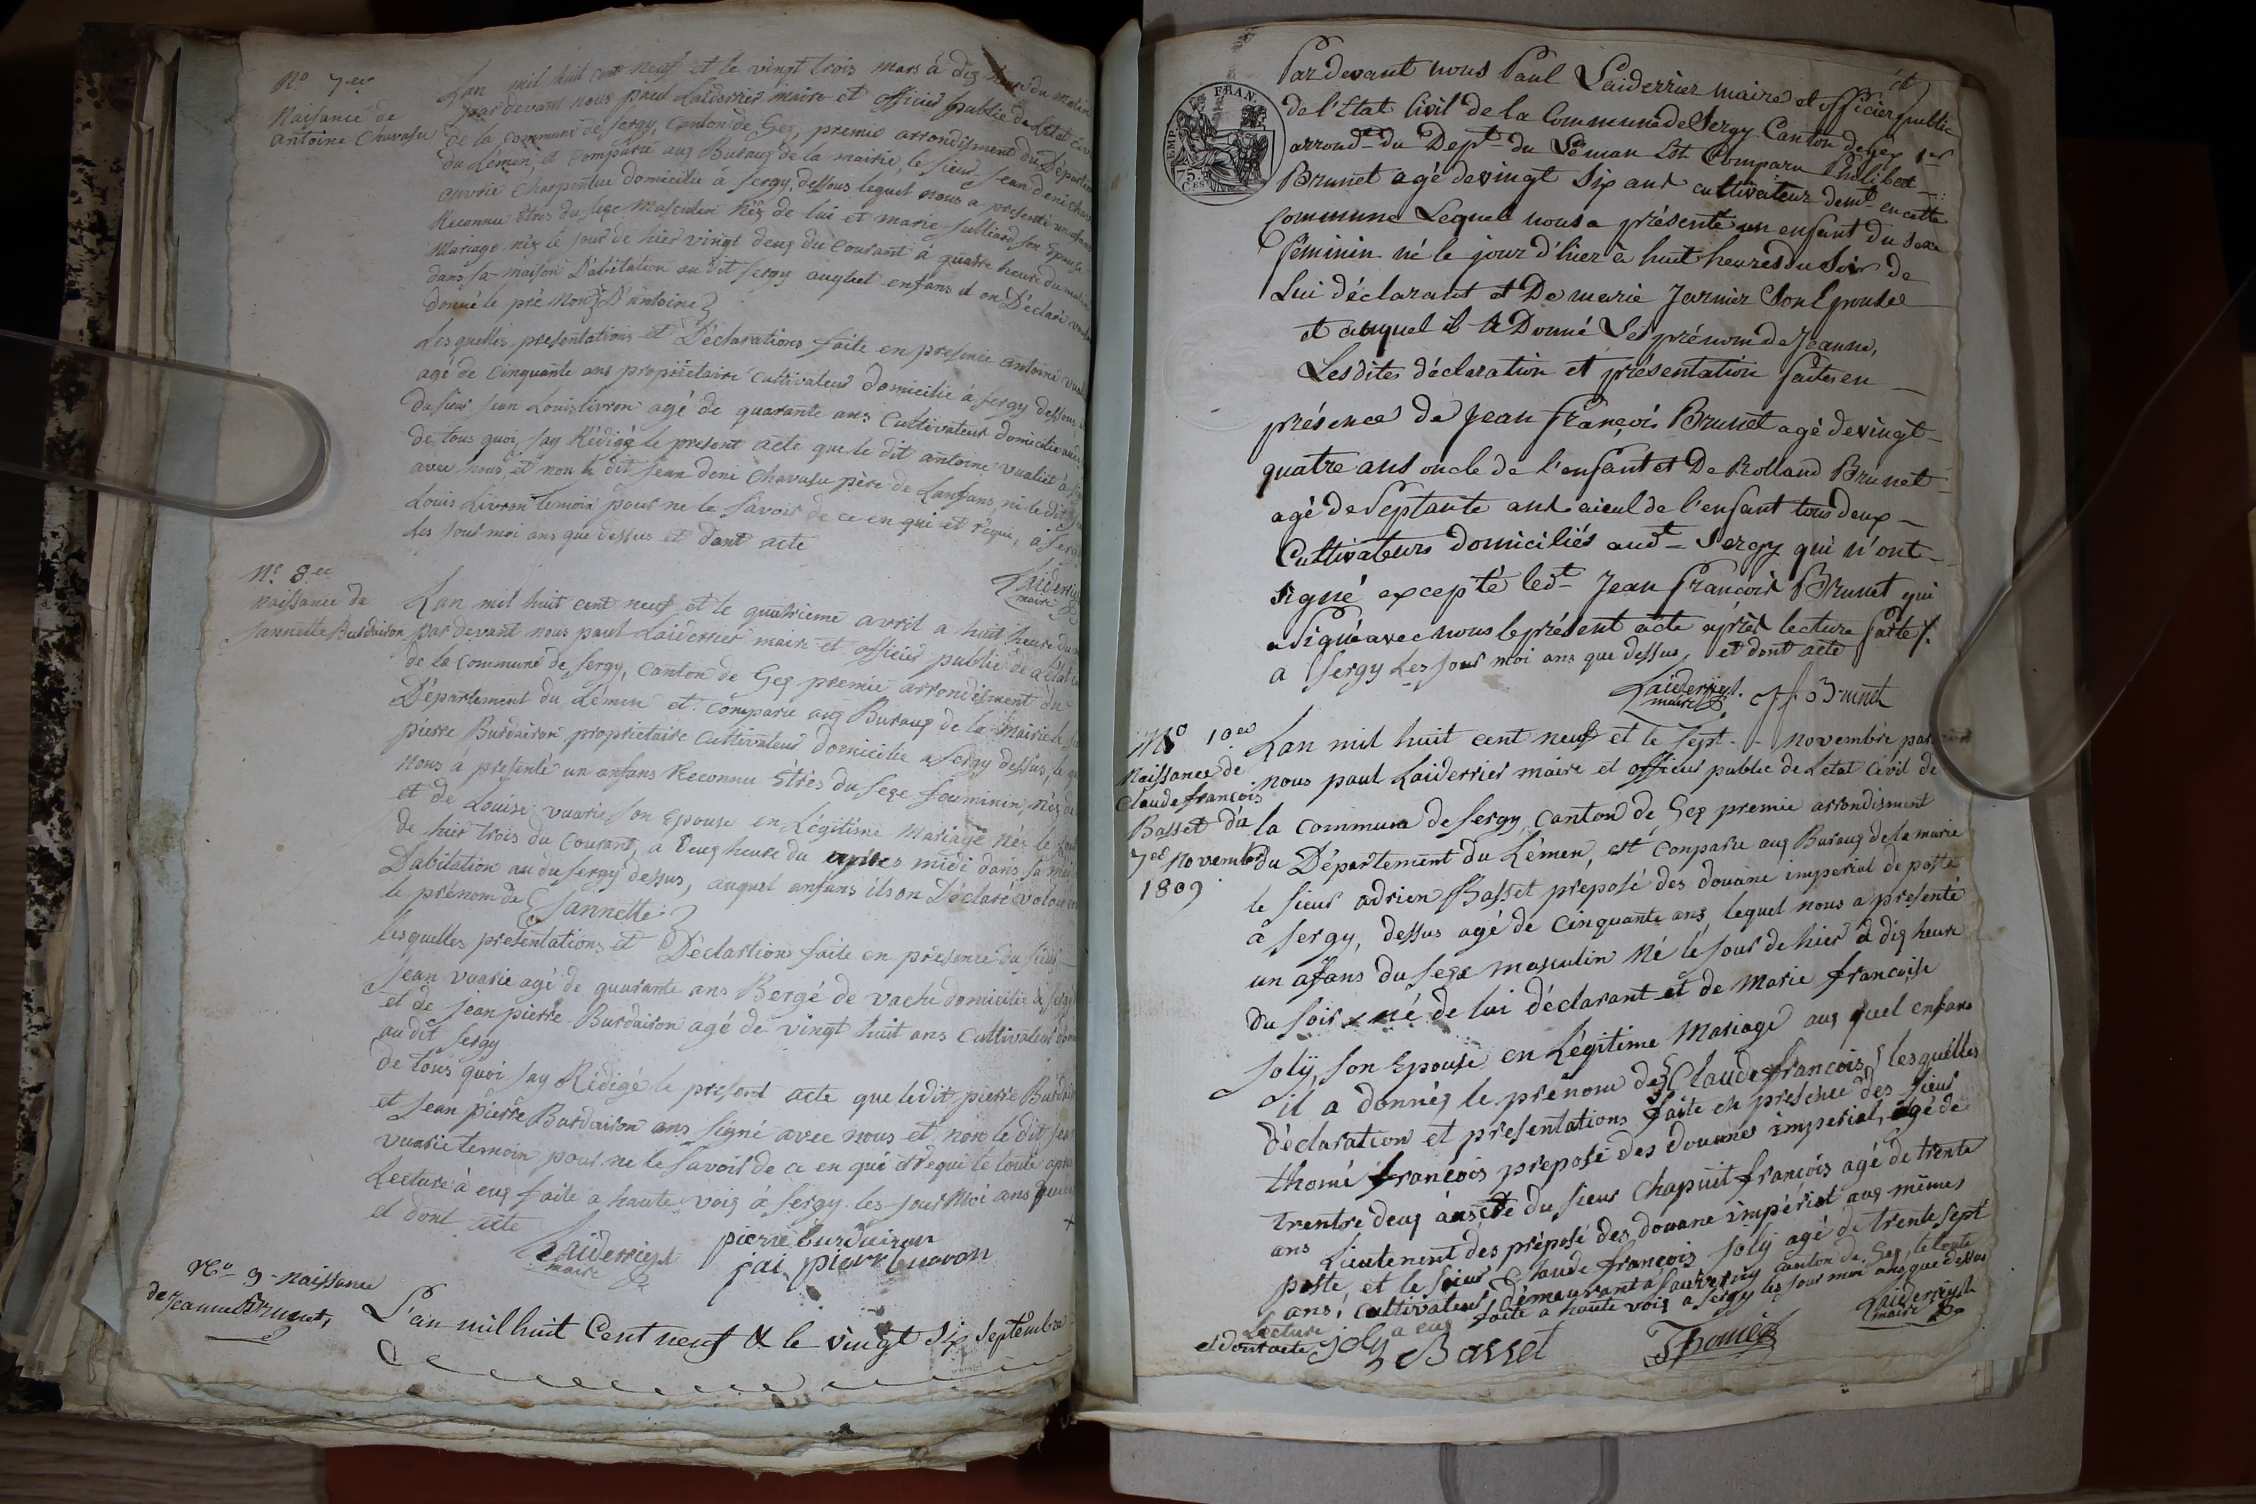 N.o 7.eme
Naisance de
antoine Chavasu
Lan mil huit cent neuf et le vingt trois mars à dix heure du matin
par devant nous paul Laiderrier maire et officier public de Létat Civ
de la commune de Sergy, Canton de Gex, premie arrondisment du Départem
du Lémen, et comparu aux Buraux de la mairie, le sieur Jean deni Chav
ouvrie Charpentie domicilie à Sergy, dessous lequel nous a presenté un anfan
Reconnu êtres du sexe Masculin néz de lui et marie Julliard son Epouse
Mariage néz le jour de hier vingt deux du Courant à quatre heure du matin
dans sa maison D'abitation au dit Sergy auquel enfans il on Déclaré voul
donné le pré Mon D'antoine
Lesquelles presentations et Déclarations faite en presence antoine vual
agé de Cinquante ans propriétaire Cultivateur domicilie à Sergy dessous
du sieur Jean Louis Livron agé de quarante ans Cultivateur domicilie au
de tous quoi jay Rédigé le present acte que le dit antoine vualiet à
avec nous, et non le dit Jean deni Chavasu père de Lanfans, ni le dit
Louis Livron temoin pour ne le savoir de ce en qui et réqui, à Sergy
les jour moi ans que dessus et dont acte
Laiderrier
maire
N.o 8.ee
Naissance de
Jannette Burdairon
Lan mil huit cent neuf et le quatrieme avril a huit heure du
par devant nous paul Laiderrier maire et officier public de L'état
de la Commune de Sergy, Canton de Gex premie arrondisment du
Département du Lémen et comparu aux Buraux de la Mairie le
pierre Burdairon propriétaire Cultivateur domicilie a Sergy dessus, le
nous a presenté un anfans Reconnu Etres du sexe fouminin, néz de
et de Louise vuarie son Epouse en Légitime Mariage néz le jour
de hier trois du Courant, a Deux heure du après midi dans sa mai
D'abitation au du Sergy dessus, auquel anfans ils on Déclaré voloi
le prénom de Jannette
lesquelles presentations et Déclartion faite en présence du sieur
Jean vuarie agé de quarante ans Bergé de vache domicilie à Sergy
et de Jean pierre Burdairon agé de vingt huit ans Cultivateur dom
au dit Sergy
De tous quoi jay Rédigé le present acte que le dit pierre Burdai
et Jean pierre Burdairon ans signé avec nous et non le dit Jean
vuarie temoin pour ne le savoir de ce en qui et réqui le toute apre
Lecture à eux faite a haute voix à Sergy les jour Moi ans que
et dont acte
Laiderrier
maire
pierre burdairon
N.o 9 Naissance
de Jeanne Brunet,
L'an mil huit Cent neuf & le vingt six septembre
Par devant nous Paul Laiderrier maire et officier public
de l'Etat Civil de la Commune de Sergy Canton de Gex 1.er
arrond.t du Dep.t du Léman Est Comparu Philibert
Brunet agé de vingt Six ans cultivateur dem.t en cette
Commune Lequel nous a présenté un enfant du sexe
féminin né le jour d'hier à huit heures du Soir de
Lui déclarant et De marie Jarnier Son Epouse
et auquel il a Donné Les prénom de Jeanne,
Lesdites déclaration et présentation faites en
présence de Jean françois Brunet agé de vingt
quatre ans oncle de l'enfant et De Rolland Brunet
agé de Septante ans aieul de l'enfant tous deux
Cultivateurs domiciliés aud.t Sergy qui n'ont
signé excepté led.t Jean François Brunet qui
a Signé avec nous le présent acte après lecture faite
a Sergy Les jour moi ans que dessus, et dont acte
Laiderrier
maire
Brunet
FRAN.
75
C.ES
N.o 10.ee
Naissance de
Claude francois
Basset du
7.ee Novembre
1809
Lan mil huit cent neuf et le sept Novembre par
nous paul Laiderrier maire et officier public de Létat Civil de
la commune de Sergy, Canton de Gex premie arrondisment
du Département du Lémen, est conparu aux Buraux de la marie
le sieur adrien Basset préposé des douane imperial de poste
à Sergy, dessus agé de Cinquante ans, lequel nous a presenté
un afans du sexe masculin né le jour de hier à dix heure
du soir né de lui déclarant et de Marie francoise
Joly, son Epouse en Légitime Mariage aux quel enfans
il a donnés le prénom de Claude francois, lesquelles
déclaration et presentations faite en presence des sieur
thomé francois preposé des douanes imperial, agé de
trentre deux ans et du sieur Chapuit françois agé de trente
ans Lieutenent des préposé des douane impérial aux mêmes
poste, et le sieur Claude françois Joly agé de trente sept
ans, Cultivateur, demeurant à Sauverny canton de Gex, le toute
Lecture a eux faite a haute voix a Sergy les jour moi ans que dessus
et dont acte
Joly
Basset
Thomé
Laiderrier
maire